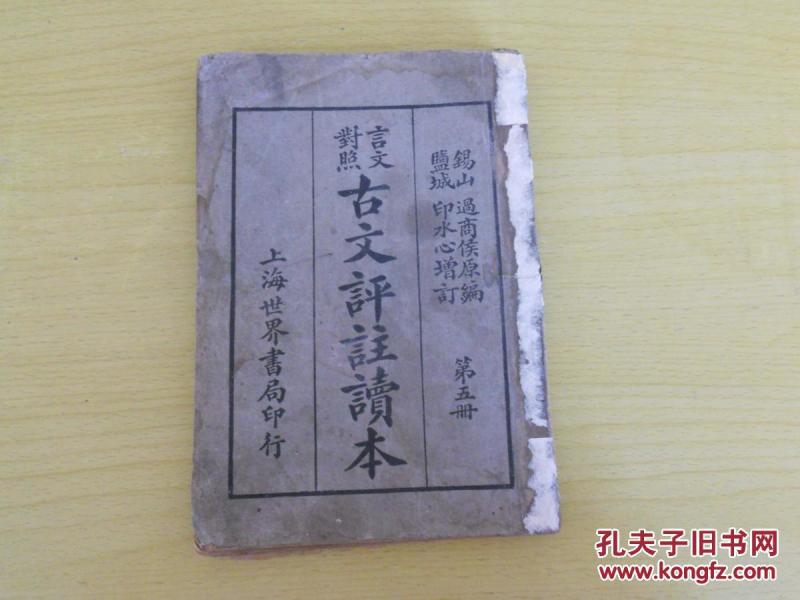 錫山 過商侯原編
鹽城 印水心增訂
第五冊
言文
對照
古文評註讀本
上海世界書局印行
孔夫子旧书网
www.kongfz.com